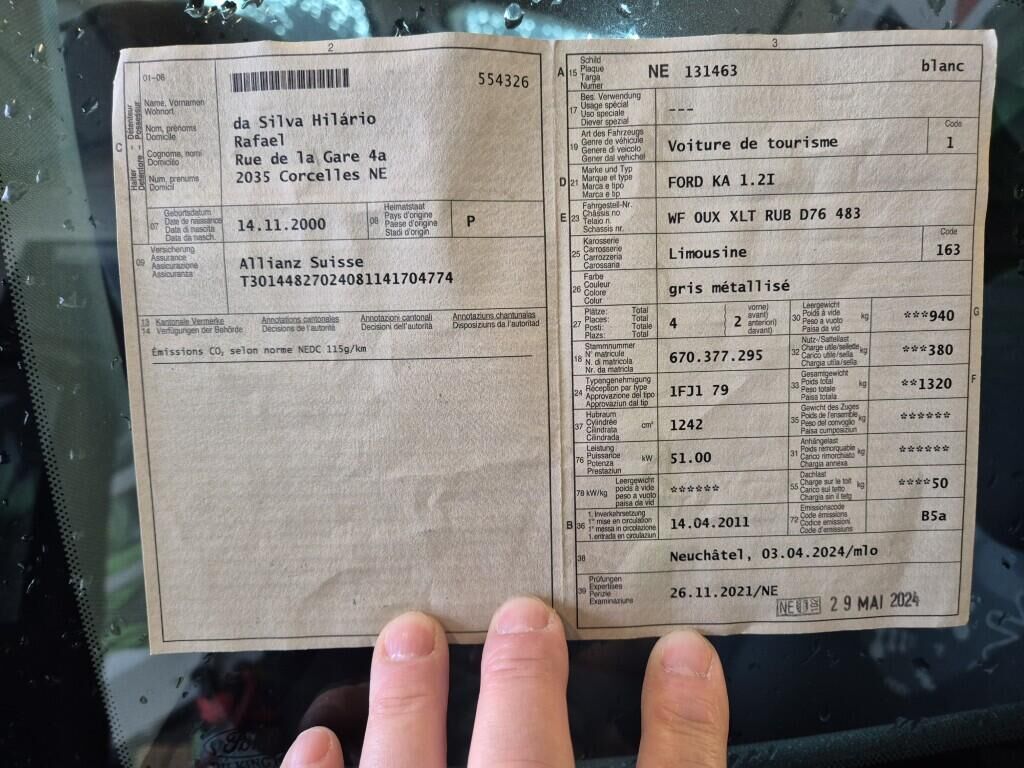 2
01-06
554326
Détenteur - Possesseur
Halter - Detentore
C
Name, Vornamen
Wohnort
Nom, prénoms
Domicile
Cognome, nomi
Domicilio
Num, prenums
Domicil
da Silva Hilário
Rafael
Rue de la Gare 4a
2035 Corcelles NE
07
Geburtsdatum
Date de naissance
Data di nascita
Data da nasch.
14.11.2000
08
Heimatstaat
Pays d'origine
Paese d'origine
Stadi d'origin
P
09
Versicherung
Assurance
Assicurazione
Assicuranza
Allianz Suisse
T30144827024081141704774
13 Kantonale Vermerke Annotations cantonales Annotazioni cantonali Annotaziuns chantunalas
14 Verfügungen der Behörde Décisions de l'autorité Decisioni dell'autorità Disposiziuns da l'autoritad
Émissions CO₂ selon norme NEDC 115g/km
3
A 15
Schild
Plaque
Targa
Numer
NE 131463 blanc
17
Bes. Verwendung
Usage spécial
Uso speciale
Diever spezial
---
19
Art des Fahrzeugs
Genre de véhicule
Genere di veicolo
Gener dal vehichel
Voiture de tourisme
Code
1
D 21
Marke und Typ
Marque et type
Marca e tipo
Marca e tip
FORD KA 1.2I
E 23
Fahrgestell-Nr.
Châssis no
Telaio n.
Schassis nr.
WF OUX XLT RUB D76 483
25
Karosserie
Carrosserie
Carrozzeria
Carossaria
Limousine
Code
163
26
Farbe
Couleur
Colore
Colur
gris métallisé
27
Plätze: Total
Places: Total
Posti: Totale
Plazs: Total
4
2
vorne)
avant)
anteriori)
davant)
30
Leergewicht
Poids à vide
Peso a vuoto
Paisa da vid
kg
***940
G
18
Stammnummer
N° matricule
N. di matricola
Nr. da matricla
670.377.295
32
Nutz-/Sattellast
Charge utile/sellette
Carico utile/sella
Chargia utila/sella
kg
***380
24
Typengenehmigung
Réception par type
Approvazione del tipo
Approvaziun dal tip
1FJ1 79
33
Gesamtgewicht
Poids total
Peso totale
Paisa totala
kg
**1320
F
37
Hubraum
Cylindrée
Cilindrata
Cilindrada
cm³
1242
35
Gewicht des Zuges
Poids de l'ensemble
Peso del convoglio
Paisa cumposiziun
kg
******
76
Leistung
Puissance
Potenza
Prestaziun
kW
51.00
31
Anhängelast
Poids remorquable
Carico rimorchiato
Chargia annexa
kg
******
78 kW/kg
Leergewicht
poids à vide
peso a vuoto
paisa da vid
******
55
Dachlast
Charge sur le toit
Carico sul tetto
Chargia sin il tetg
kg
****50
B 36
1. Inverkehrsetzung
1re mise en circulation
1a messa in circolazione
1. entrada en circulaziun
14.04.2011
72
Emissionscode
Code émissions
Codice emissioni
Code d'emissiuns
B5a
38
Neuchâtel, 03.04.2024/mlo
39
Prüfungen
Expertises
Perizie
Examinaziuns
26.11.2021/NE
NE
29 MAI 2024